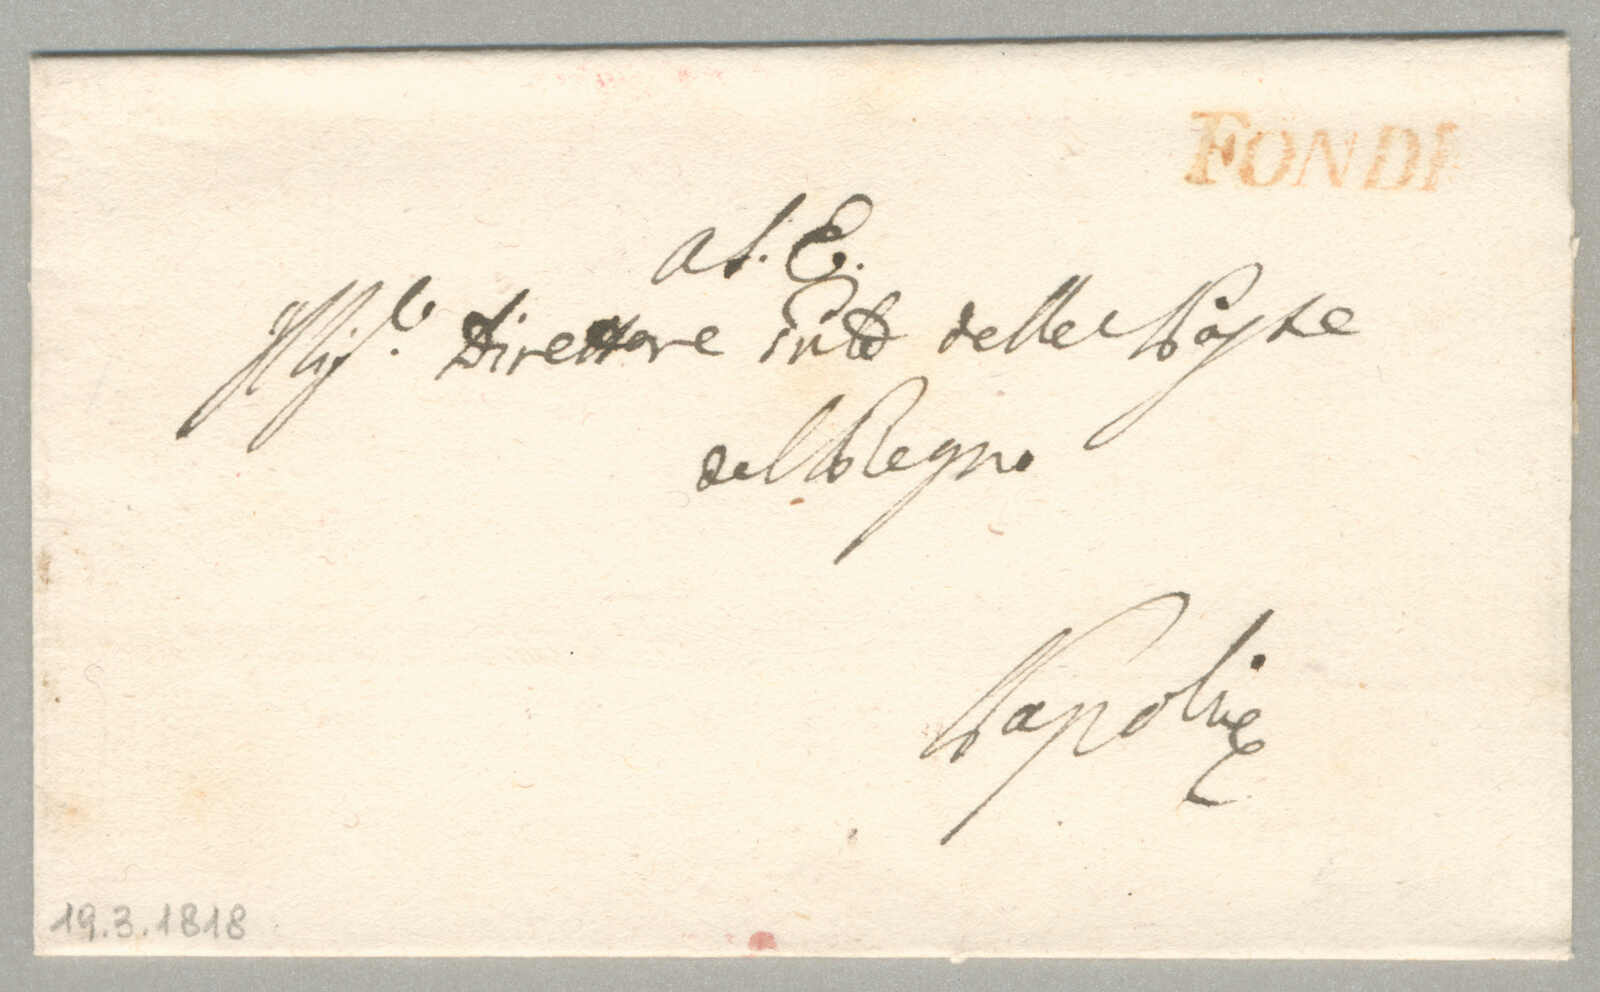 FONDI
A S. E.
Il Sig.r Direttore delle Poste
del Regno
Napoli
19.3.1818